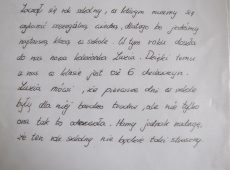 Zaczął się rok szkolny, w którym musimy się
wykazać szczególną wiedzą, dlatego że jesteśmy
najstarszą klasą w szkole. W tym roku doszła
do nas nowa koleżanka Zuzia. Dzięki temu
w klasie jest już 6 dziewczyn.
Zuzia mówi, że pierwsze dni w szkole
były dla niej bardzo trudne, ale nie tylko
ona tak to odczuwała. Mamy jednak nadzieję,
że ten rok szkolny nie będzie taki straszny.